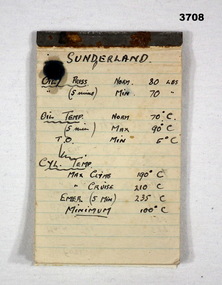 3708
SUNDERLAND.
OIL PRESS NORM. 80 LBS
" (5 mins) MIN. 70 "
OIL TEMP. NORM 70°C.
(5 min) MAX 90°C
T.O. MIN 5°C
CYL. TEMP.
MAX CLIMB 190°C
" CRUISE 210 C
EMER (5 MIN) 235 C
MINIMUM 100°C